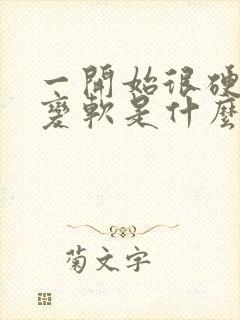 一開始很硬
變軟是什麼
菊文字